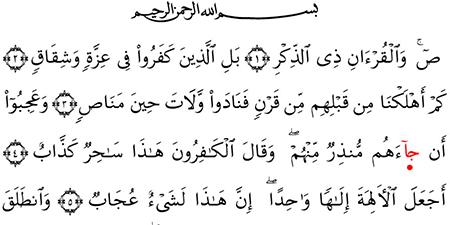 بسم الله الرحمن الرحيم
صٓ ۚ وَالْقُرْءَانِ ذِى الذِّكْرِ ﴿١﴾ بَلِ الَّذِينَ كَفَرُوا۟ فِى عِزَّةٍ وَشِقَاقٍ ﴿٢﴾
كَمْ أَهْلَكْنَا مِن قَبْلِهِم مِّن قَرْنٍ فَنَادَوا۟ وَّلَاتَ حِينَ مَنَاصٍ ﴿٣﴾ وَعَجِبُوٓا۟
أَن جَآءَهُم مُّنذِرٌ مِّنْهُمْ ۖ وَقَالَ الْكَـٰفِرُونَ هَـٰذَا سَـٰحِرٌ كَذَّابٌ ﴿٤﴾
أَجَعَلَ الْـَٔالِهَةَ إِلَـٰهًا وَٰحِدًا ۖ إِنَّ هَـٰذَا لَشَىْءٌ عُجَابٌ ﴿٥﴾ وَانطَلَقَ